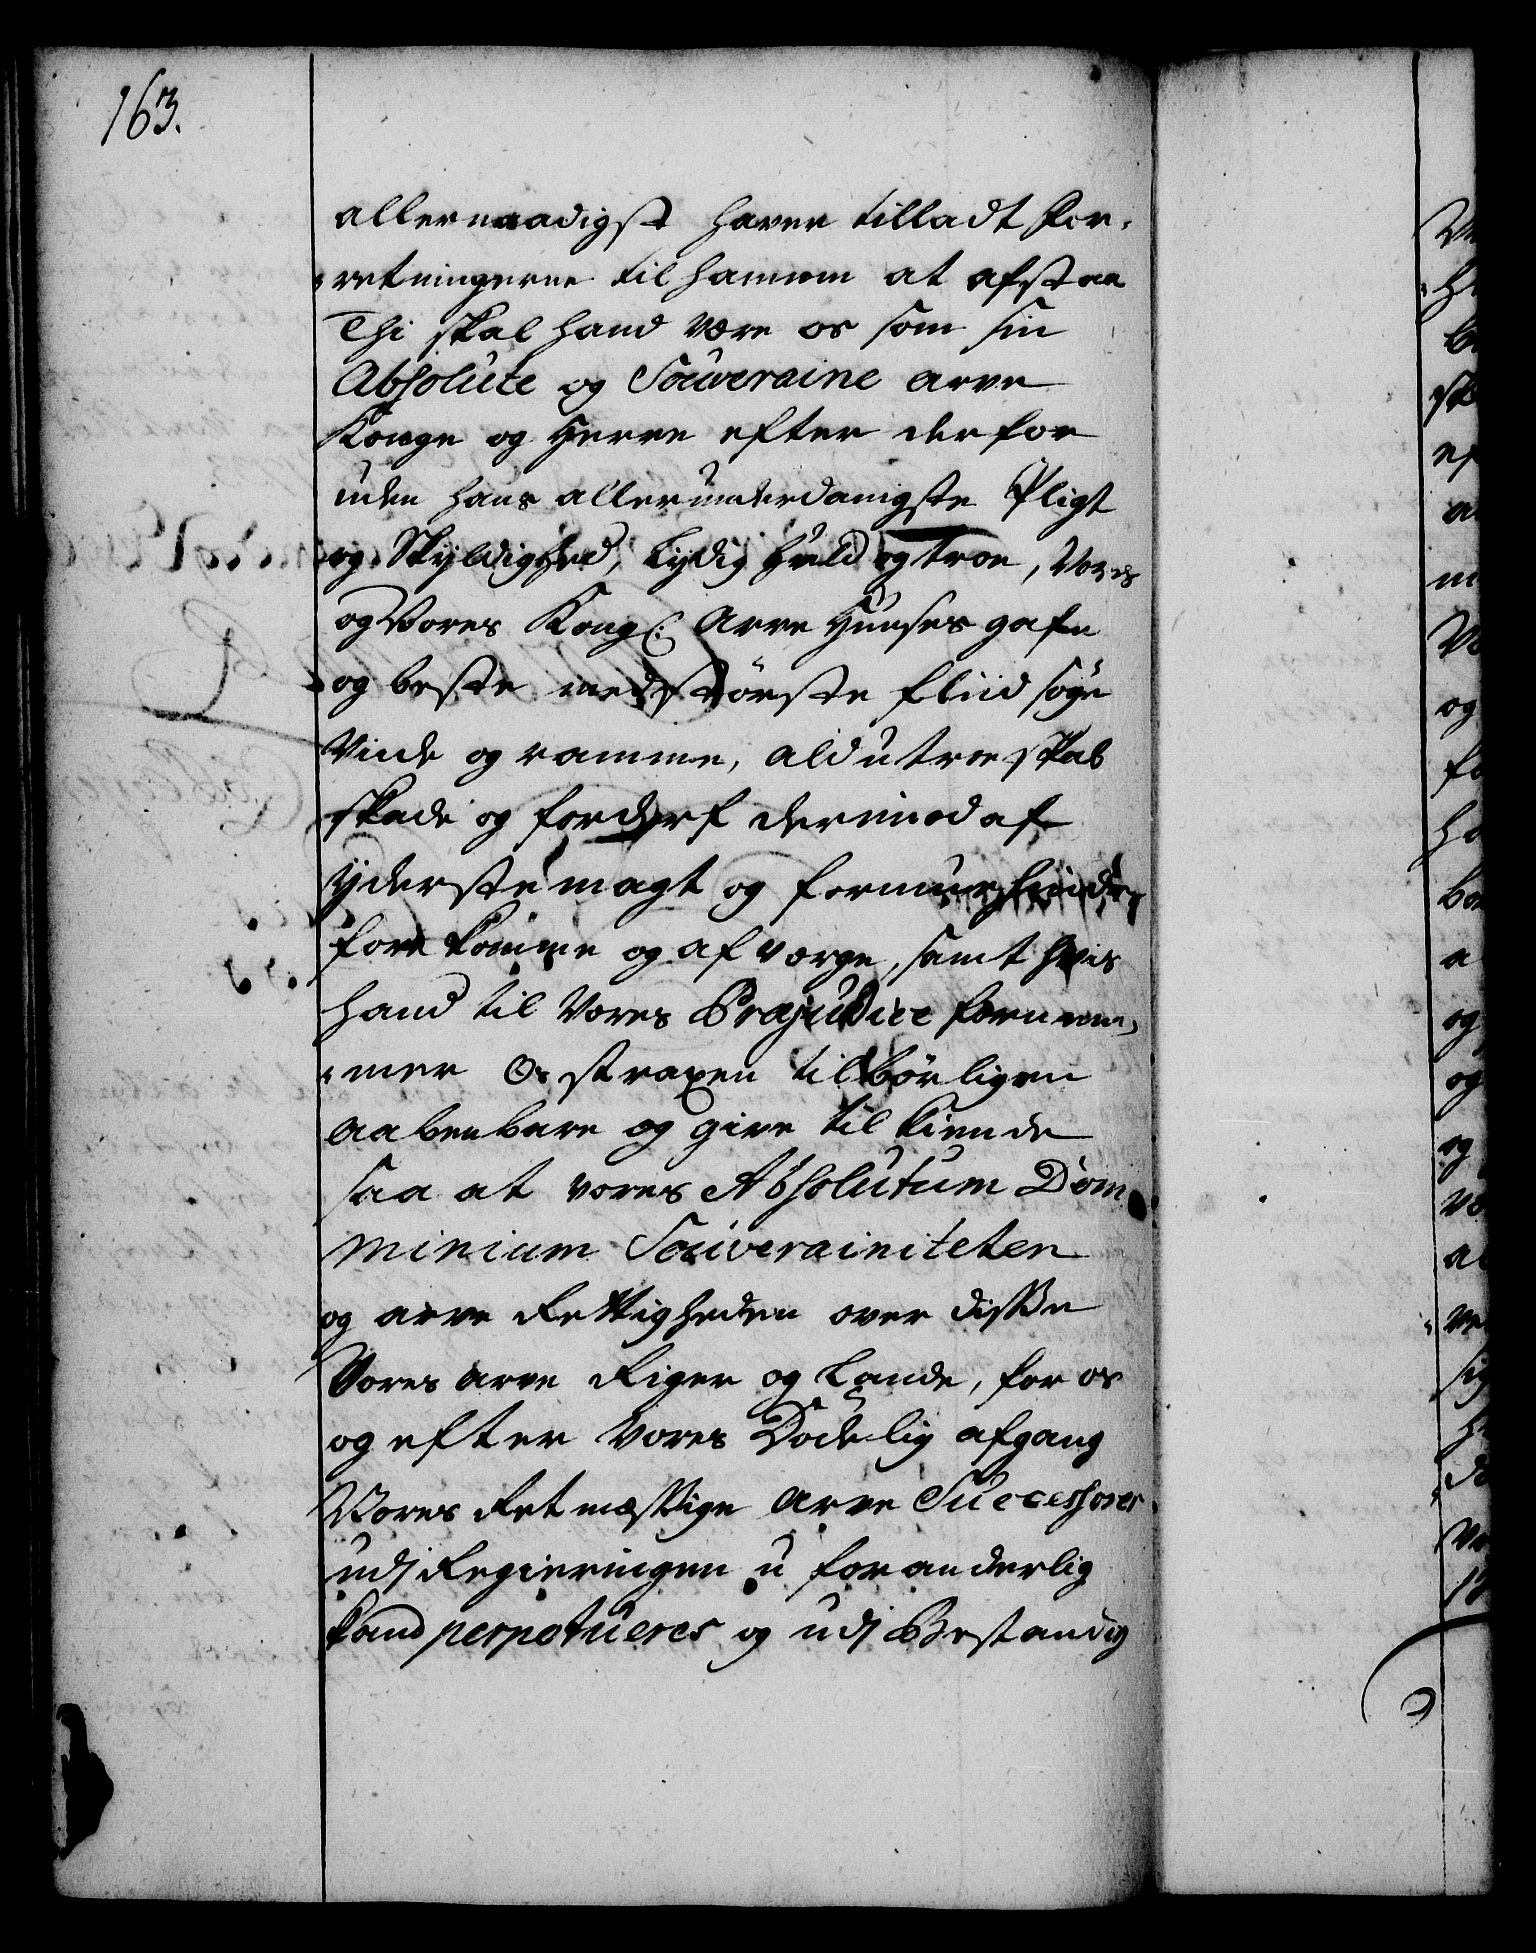 163.
allernaadigst haver tilladt For-
retningerne til hannem at afstaa
Thi skal hand være os som sin
Absolute og Souveraine arve
Konge og Herre efter derfor
uden hans allerunderdanigste Pligt
og Skyldighed, Lydig Huld og troe, Vores
og Vores Kongl: Arve Huuses gafn
og beste med største fliid søge
Vinde og ramme, ald utroeskab
skade og forderf derimod af
yderste magt og formue hindre,
forekomme og afværge, samt hvis
hand til Vores Præjudice fornem-
mer Os straxen tilbørligen
aabenbare og give tilkiende
saa at vores Absolutum Dom-
minium Souverainiteten
og arve Rettigheden over disse
Vores arve Riger og Lande, for os
og efter Vores Dødelig afgang
Vores Retmæssige Arve Successores
udj Regieringen u foranderlig
kand perpetueres og udj Bestandig